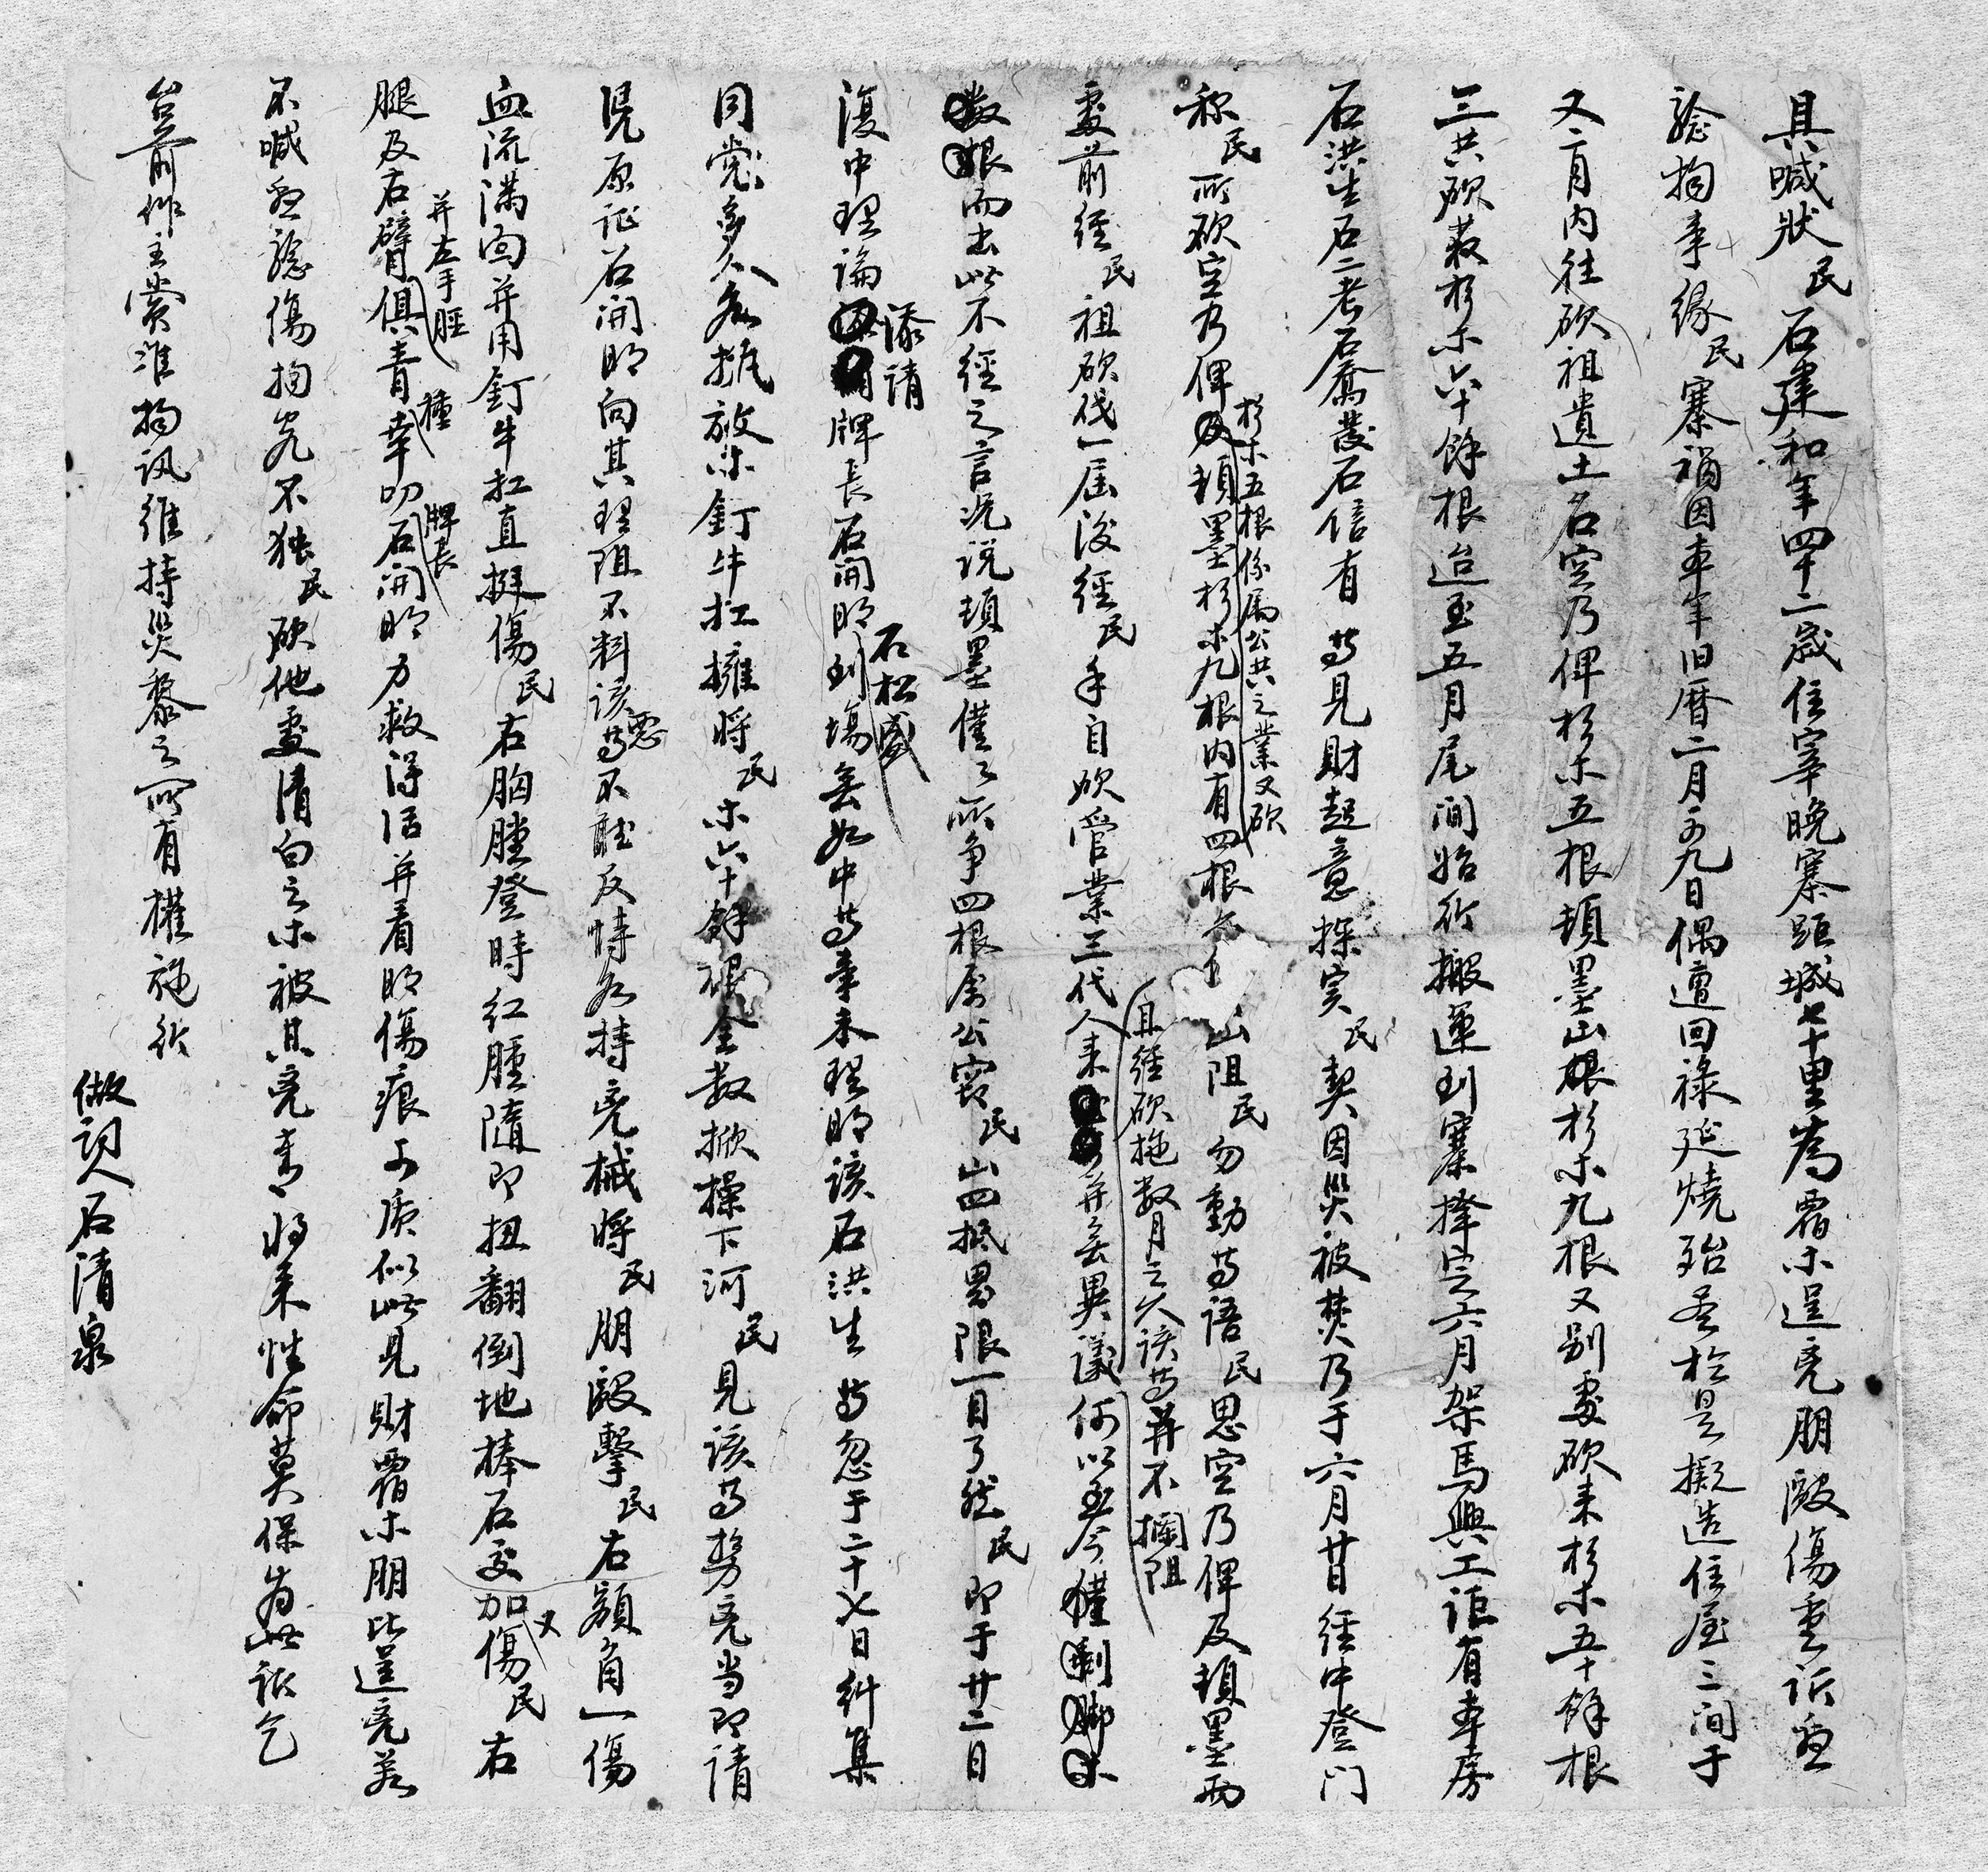 具喊狀民石建和年四十二歲住宰晚寨距城七十里為霸木逞兇朋毆傷重訴懇
驗拘事緣民寨禍因本年旧曆二月初九日偶遭回祿延燒殆盡於是擬造住屋三间于
又二月内往砍祖遺土名空乃俾杉木五根頓墨山根杉木九根又别處砍来杉木五十餘根
三共砍獲杉木六十餘根迨至五月尾间始行搬運到寨擇定六月架馬興工詎有本房
石洪生石二老石喬發石信有等見財起意探实民契因災被焚乃于六月廿日經中登门
称民所砍空乃俾杉木五根係属公共之業又砍頓墨杉木九根内有四根 山阻民勿動等語民思空乃俾及頓墨兩
處前經民祖砍伐一屆後經民手自砍管業三代人来并無異議且經砍拖数月之久該等并不攔阻何以至今
而出此不經之言况说頓墨僅僅所争四根屬公窃民山四抵界限一目了然民即于廿二日
復中理論添請牌長石開明石松盛到場無如中等素未理明該石洪生等忽于二十七日糾集
同党多人各執放木釘牛扛擁將民木六十餘根全数掀擡下河民見該等勢兇当即請
凭原証石開明向其理阻不料該惡等不聽反恃各持兇械將民朋毆擊民右額角一傷
血流满面并用釘牛扛直挺傷民右胸膛登時红腫隨即扭翻倒地棒石交加又傷民右
腿及右臂并左手腫俱青種幸叨牌長石開明力救得活并看明傷痕可质似此見財霸木朋比逞兇若
不喊懇驗傷拘究不独民砍他處清白之木被其兇吞将来性命莫保為此訴乞
台前作主賞准拘讯維持災黎之所有權施行
做詞人石清泉